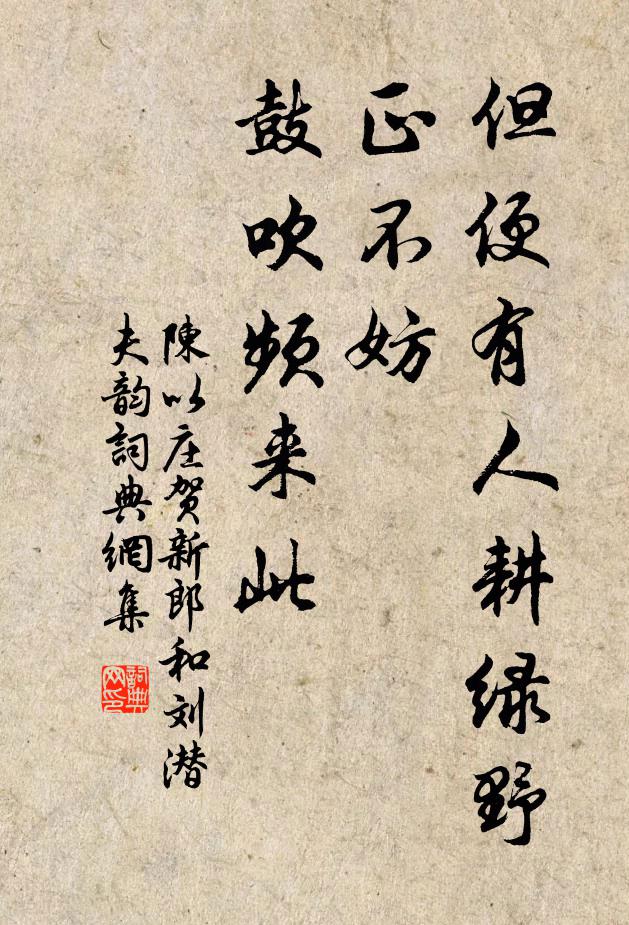 但便有人耕绿野
正不妨
鼓吹频来此
陳以庄贺新郎和刘潜
夫韵詞典網集
詞典
网印